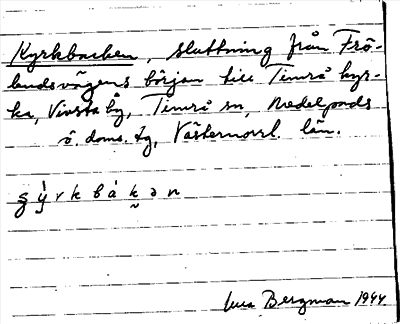 Kyrkbacken, sluttning från Frö-
landsvägens början till Timrå kyr-
ka, Vivsta by, Timrå sn, Medelpads
ö. doms. tg, Västernorrl. län.
g ý r k b à k ə n
Bergman 1944.